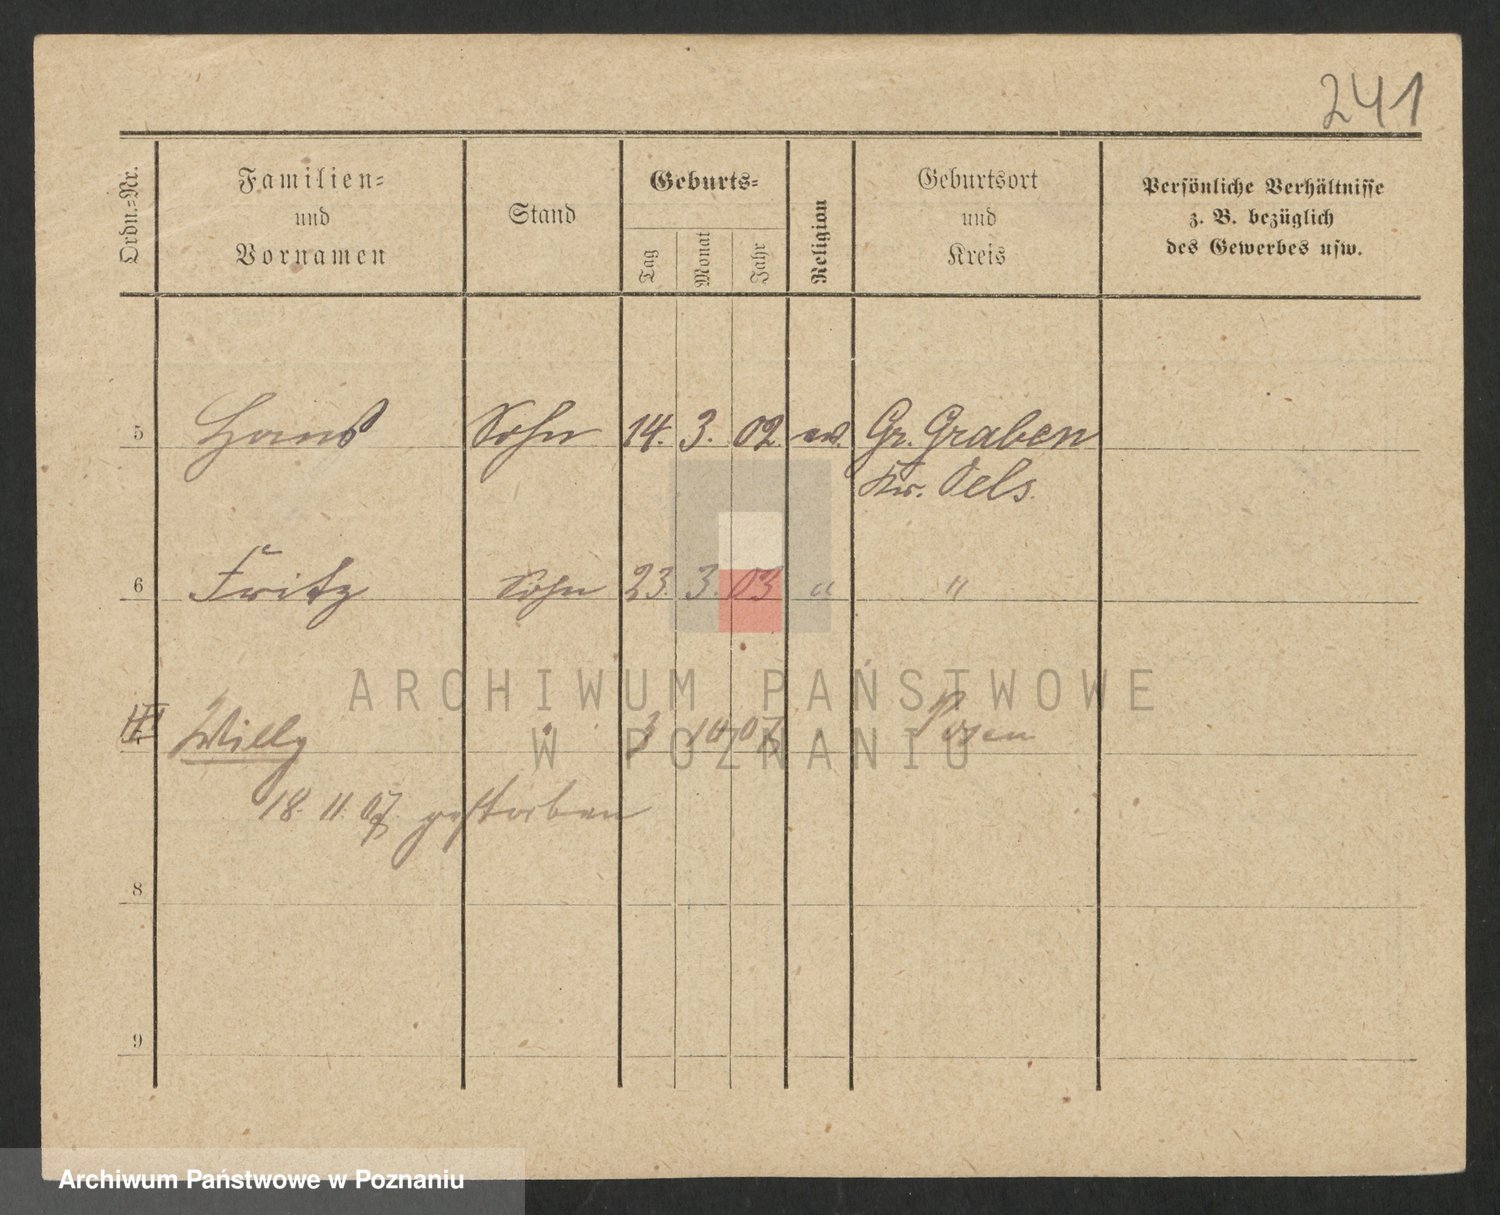 241
Ordn.-Nr.
Familien-
und
Vornamen
Stand
Geburts-
Tag
Monat
Jahr
Religion
Geburtsort
und
Kreis
Persönliche Verhältnisse
z. B. bezüglich
des Gewerbes usw.
5 Hans Sohn 14. 3. 02. ev. Gr. Graben
Kr. Oels.
6 Fritz Sohn 23. 3. 03 " "
Willy 3 10 07 Posen
18. 11. 07. gestorben
8
9
ARCHIWUM PAŃSTWOWE
W POZNANIU
Archiwum Państwowe w Poznaniu